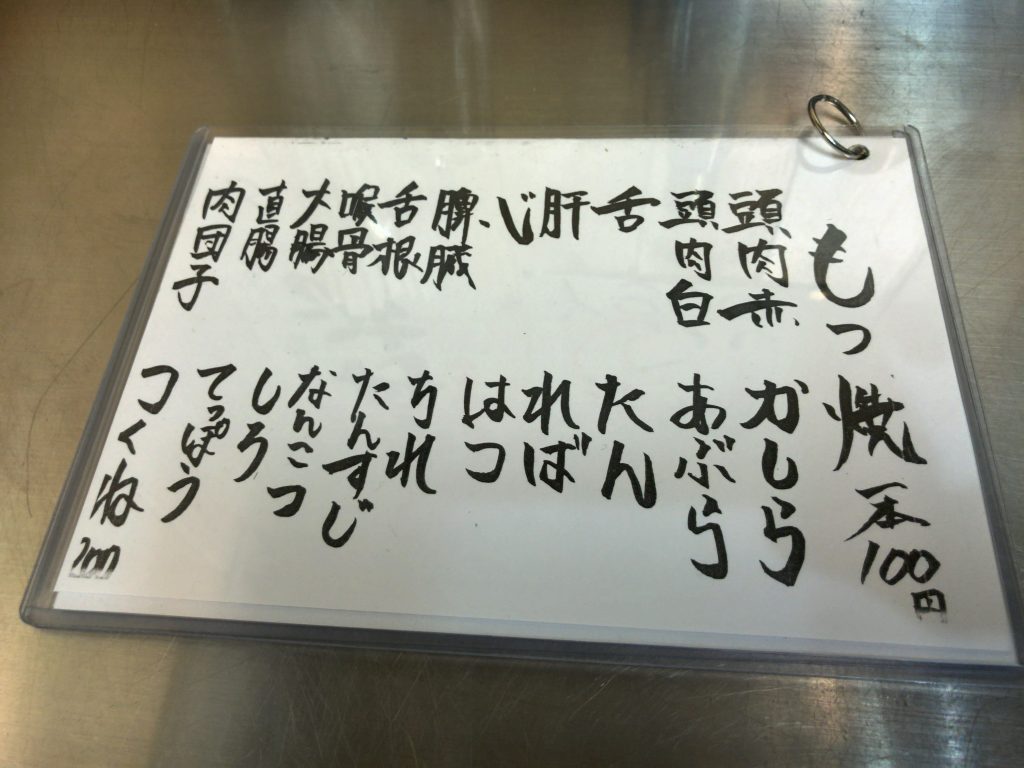 もつ焼 一本100円
頭肉赤 かしら
頭肉白 あぶら
舌 たん
肝 れば
心 はつ
脾臓 ちれ
舌根 たんすじ
喉骨 なんこつ
大腸 しろ
直腸 てっぽう
肉団子 つくね 200